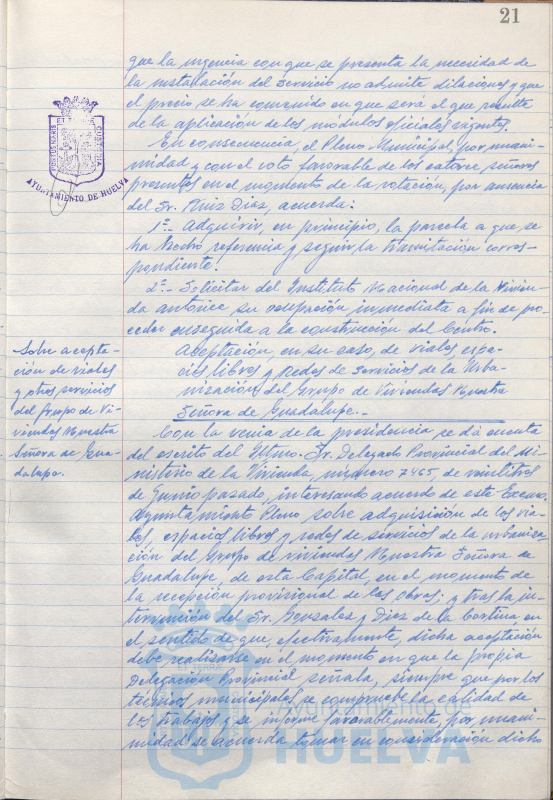 21
que la urgencia con que se presenta la necesidad de
la instalación del Servicio no admite dilaciones y que
el precio se ha convenido en que será el que resulte
de la aplicación de los módulos oficiales vigentes.
En consecuencia, el Pleno Municipal, por unani-
midad y con el voto favorable de los catorce señores
presentes en el momento de la votación, por ausencia
del Sr. Ruiz Díaz, acuerda:
1º.- Adquirir, en principio, la parcela a que se
ha hecho referencia y seguir la tramitación corres-
pondiente.
2º.- Solicitar del Instituto Nacional de la Vivien-
da autorice su ocupación inmediata a fin de pro-
ceder enseguida a la construcción del Centro.
Sobre acepta-
ción de viales
y otros servicios
del Grupo de Vi-
viendas Nuestra
Señora de Gua-
dalupe.
Aceptación, en su caso, de viales, espa-
cios libres y Redes de Servicios de la Urba-
nización del Grupo de Viviendas Nuestra
Señora de Guadalupe.-
Con la venia de la presidencia se dá cuenta
del escrito del Iltmo. Sr. Delegado Provincial del Mi-
nisterio de la Vivienda, número 7465, de veintitres
de Junio pasado, interesando acuerdo de este Excmo.
Ayuntamiento Pleno sobre adquisición de los via-
les, espacios libres y redes de servicios de la urbaniza-
ción del Grupo de viviendas Nuestra Señora de
Guadalupe, de esta Capital, en el momento de
la recepción provisional de las obras; y tras la in-
tervención del Sr. González y Díez de la Cortina en
el sentido de que, efectivamente, dicha aceptación
debe realizarse en el momento en que la propia
Delegación Provincial señala, siempre que por los
técnicos municipales se compruebe la calidad de
los trabajos y se informe favorablemente, por unani-
midad se acuerda tomar en consideración dicho
AYUNTAMIENTO DE HUELVA
Ayuntamiento de
HUELVA